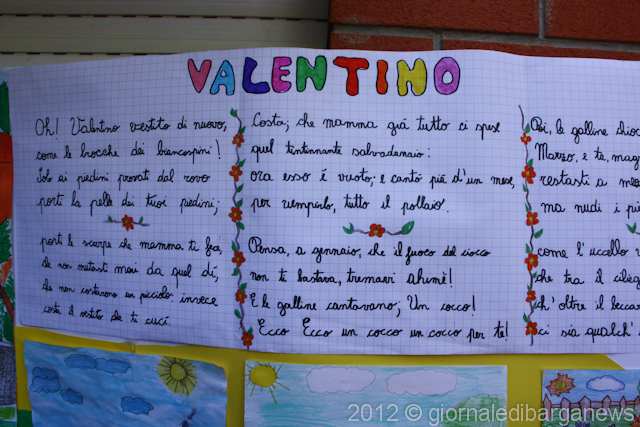 VALENTINO
Oh! Valentino vestito di nuovo,
come le brocche dei biancospini!
Solo ai piedini provati dal rovo
porti la pelle dei tuoi piedini;
porti le scarpe che mamma ti
che non mutasti mai da quel dí,
che non costarono un piccolo: invece
costa il vestito che ti cucí.
Costa; che mamma giá tutto ci spese
quel tintinnante salvadenaio:
ora esso é vuoto; e cantó piú d'un mese,
per riempirlo, tutto il pollaio.
Pensa, a gennaio, che il fuoco del ciocco
non ti bastava, tremavi ahimè!
E le galline cantavano; Un cocco!
Ecco Ecco un cocco un cocco per te!
Poi, le galline chioc
Marzo, e tu, mag
restasti a me
ma nudi i pi
come l'uccello v
che tra il cilieg
ch'oltre il becca
ci sia qualch'
2012 © giornaledibarganews